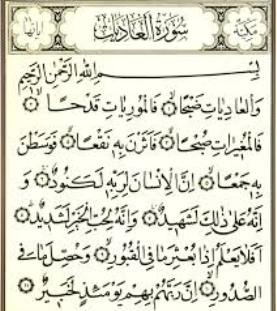 مكية سُورَةُ الْعَادِيَات آياتها
بِسْمِ اللهِ الرَّحْمٰنِ الرَّحِيمِ
وَالْعَادِيَاتِ ضَبْحًا فَالْمُورِيَاتِ قَدْحًا
فَالْمُغِيرَاتِ صُبْحًا فَاَثَرْنَ بِهِ نَقْعًا فَوَسَطْنَ
بِهِ جَمْعًا اِنَّ الْاِنْسَانَ لِرَبِّهِ لَكَنُودٌ وَ
اِنَّهُ عَلٰى ذٰلِكَ لَشَهِيدٌ وَاِنَّهُ لِحُبِّ الْخَيْرِ لَشَدِيدٌ
اَفَلَا يَعْلَمُ اِذَا بُعْثِرَ مَا فِي الْقُبُورِ وَحُصِّلَ مَا فِي
الصُّدُورِ اِنَّ رَبَّهُمْ بِهِمْ يَوْمَئِذٍ لَخَبِيرٌ